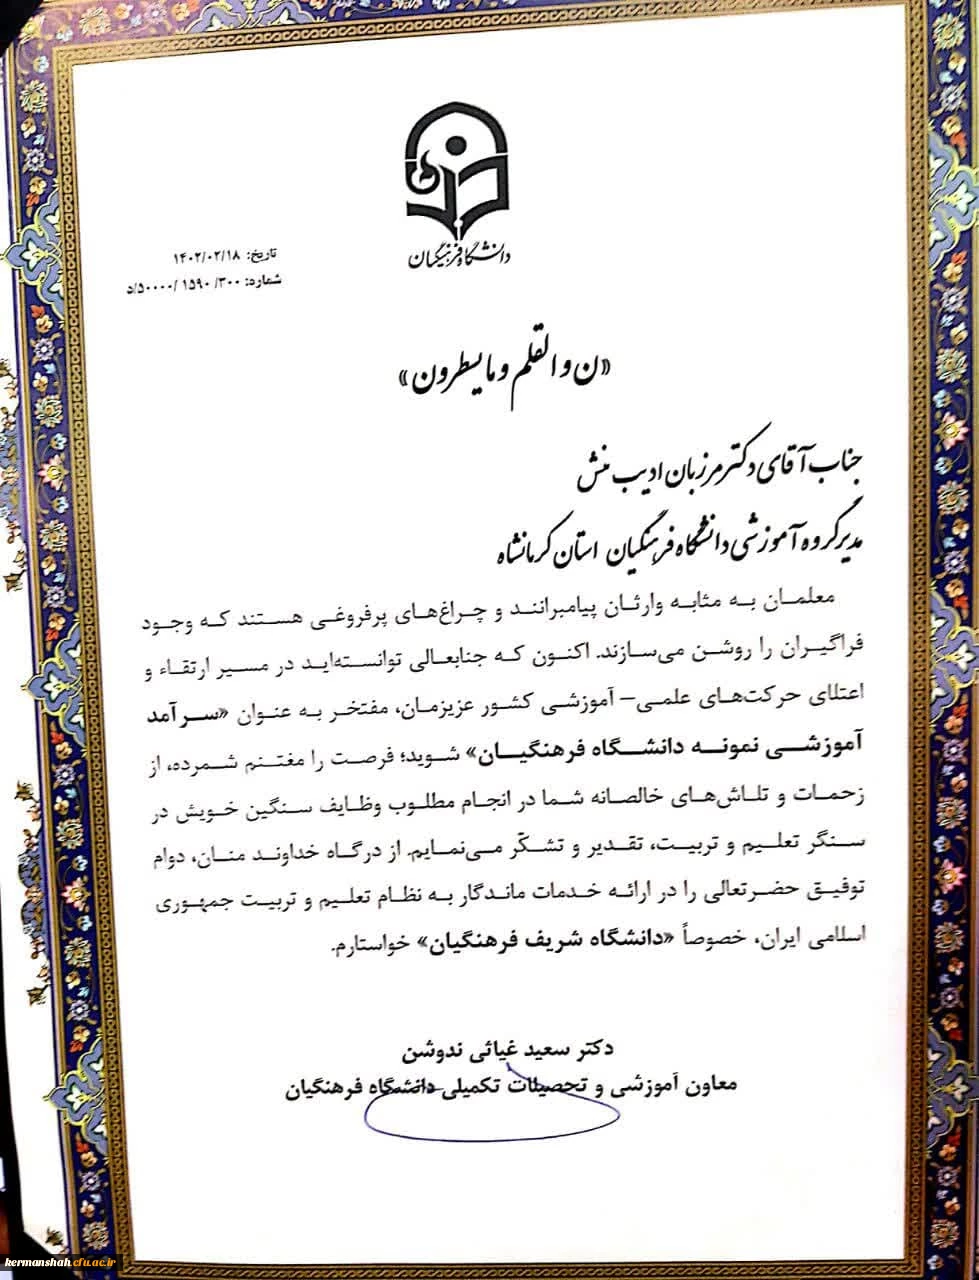 دانشگاه فرهنگیان
تاریخ: ۱۴۰۲/۰۲/۱۸
شماره: ۳۰۰/ ۱۵۹۰ /۵۰۰۰۰/د
«ن و القلم و ما یسطرون»
جناب آقای دکتر مرزبان ادیب منش
مدیر گروه آموزشی دانشگاه فرهنگیان استان کرمانشاه
معلمان به مثابه وارثان پیامبرانند و چراغ‌های پرفروغی هستند که وجود
فراگیران را روشن می‌سازند. اکنون که جنابعالی توانسته‌اید در مسیر ارتقاء و
اعتلای حرکت‌های علمی- آموزشی کشور عزیزمان، مفتخر به عنوان «سرآمد
آموزشی نمونه دانشگاه فرهنگیان» شوید؛ فرصت را مغتنم شمرده، از
زحمات و تلاش‌های خالصانه شما در انجام مطلوب وظایف سنگین خویش در
سنگر تعلیم و تربیت، تقدیر و تشکّر می‌نمایم. از درگاه خداوند منان، دوام
توفیق حضرتعالی را در ارائه خدمات ماندگار به نظام تعلیم و تربیت جمهوری
اسلامی ایران، خصوصاً «دانشگاه شریف فرهنگیان» خواستارم.
دکتر سعید غیاثی ندوشن
معاون آموزشی و تحصیلات تکمیلی دانشگاه فرهنگیان
kermanshah.cfu.ac.ir